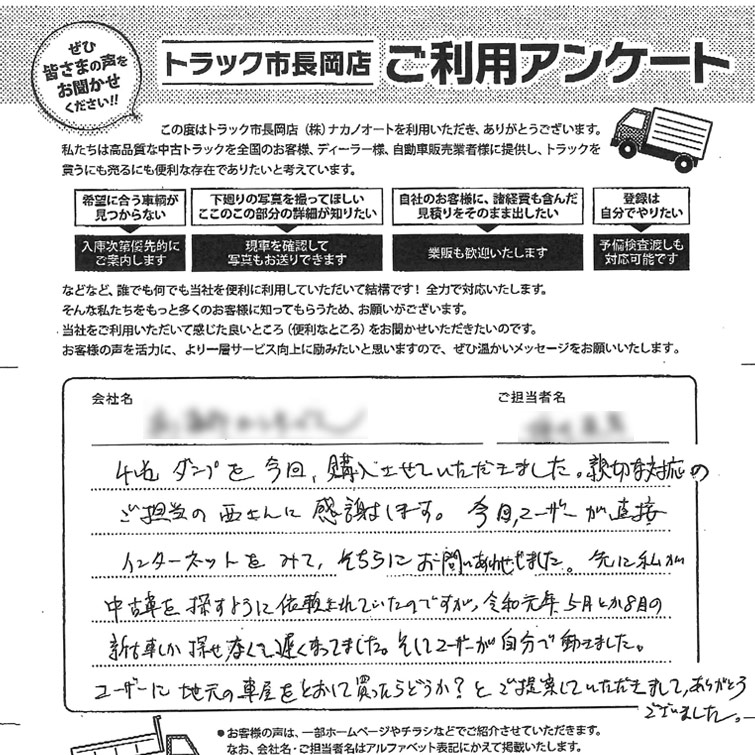 ぜひ
皆さまの声を
お聞かせ
ください!!
トラック市長岡店 ご利用アンケート
この度はトラック市長岡店(株)ナカノオートを利用いただき、ありがとうございます。
私たちは高品質な中古トラックを全国のお客様、ディーラー様、自動車販売業者様に提供し、トラックを
買うにも売るにも便利な存在でありたいと考えています。
希望に合う車輌が
見つからない
入庫次第優先的に
ご案内します
下廻りの写真を撮ってほしい
ここのこの部分の詳細が知りたい
現車を確認して
写真もお送りできます
自社のお客様に、諸経費も含んだ
見積りをそのまま出したい
業販も歓迎いたします
登録は
自分でやりたい
予備検査渡しも
対応可能です
などなど、誰でも何でも当社を便利に利用していただいて結構です!全力で対応いたします。
そんな私たちをもっと多くのお客様に知ってもらうため、お願いがございます。
当社をご利用いただいて感じた良いところ(便利なところ)をお聞かせいただきたいのです。
お客様の声を活力に、より一層サービス向上に励みたいと思いますので、ぜひ温かいメッセージをお願いいたします。
会社名 ご担当者名
ダンプを今回、購入させていただきました。親切な対応の
ご担当の西さんに感謝します。今回、ユーザーが直接
インターネットをみて、そちらにお問いあわせしました。先に私が
中古車を探すように依頼されていたのですが、令和元年5月とか8月の
新古車しか探せなくて遅くなってました。そしてユーザーが自分で動きました。
ユーザーに地元の車屋をとおして買ったらどうか?とご提案していただきまして、ありがとう
ございました。
●お客様の声は、一部ホームページやチラシなどでご紹介させていただきます。
なお、会社名・ご担当者名はアルファベット表記にかえて掲載いたします。